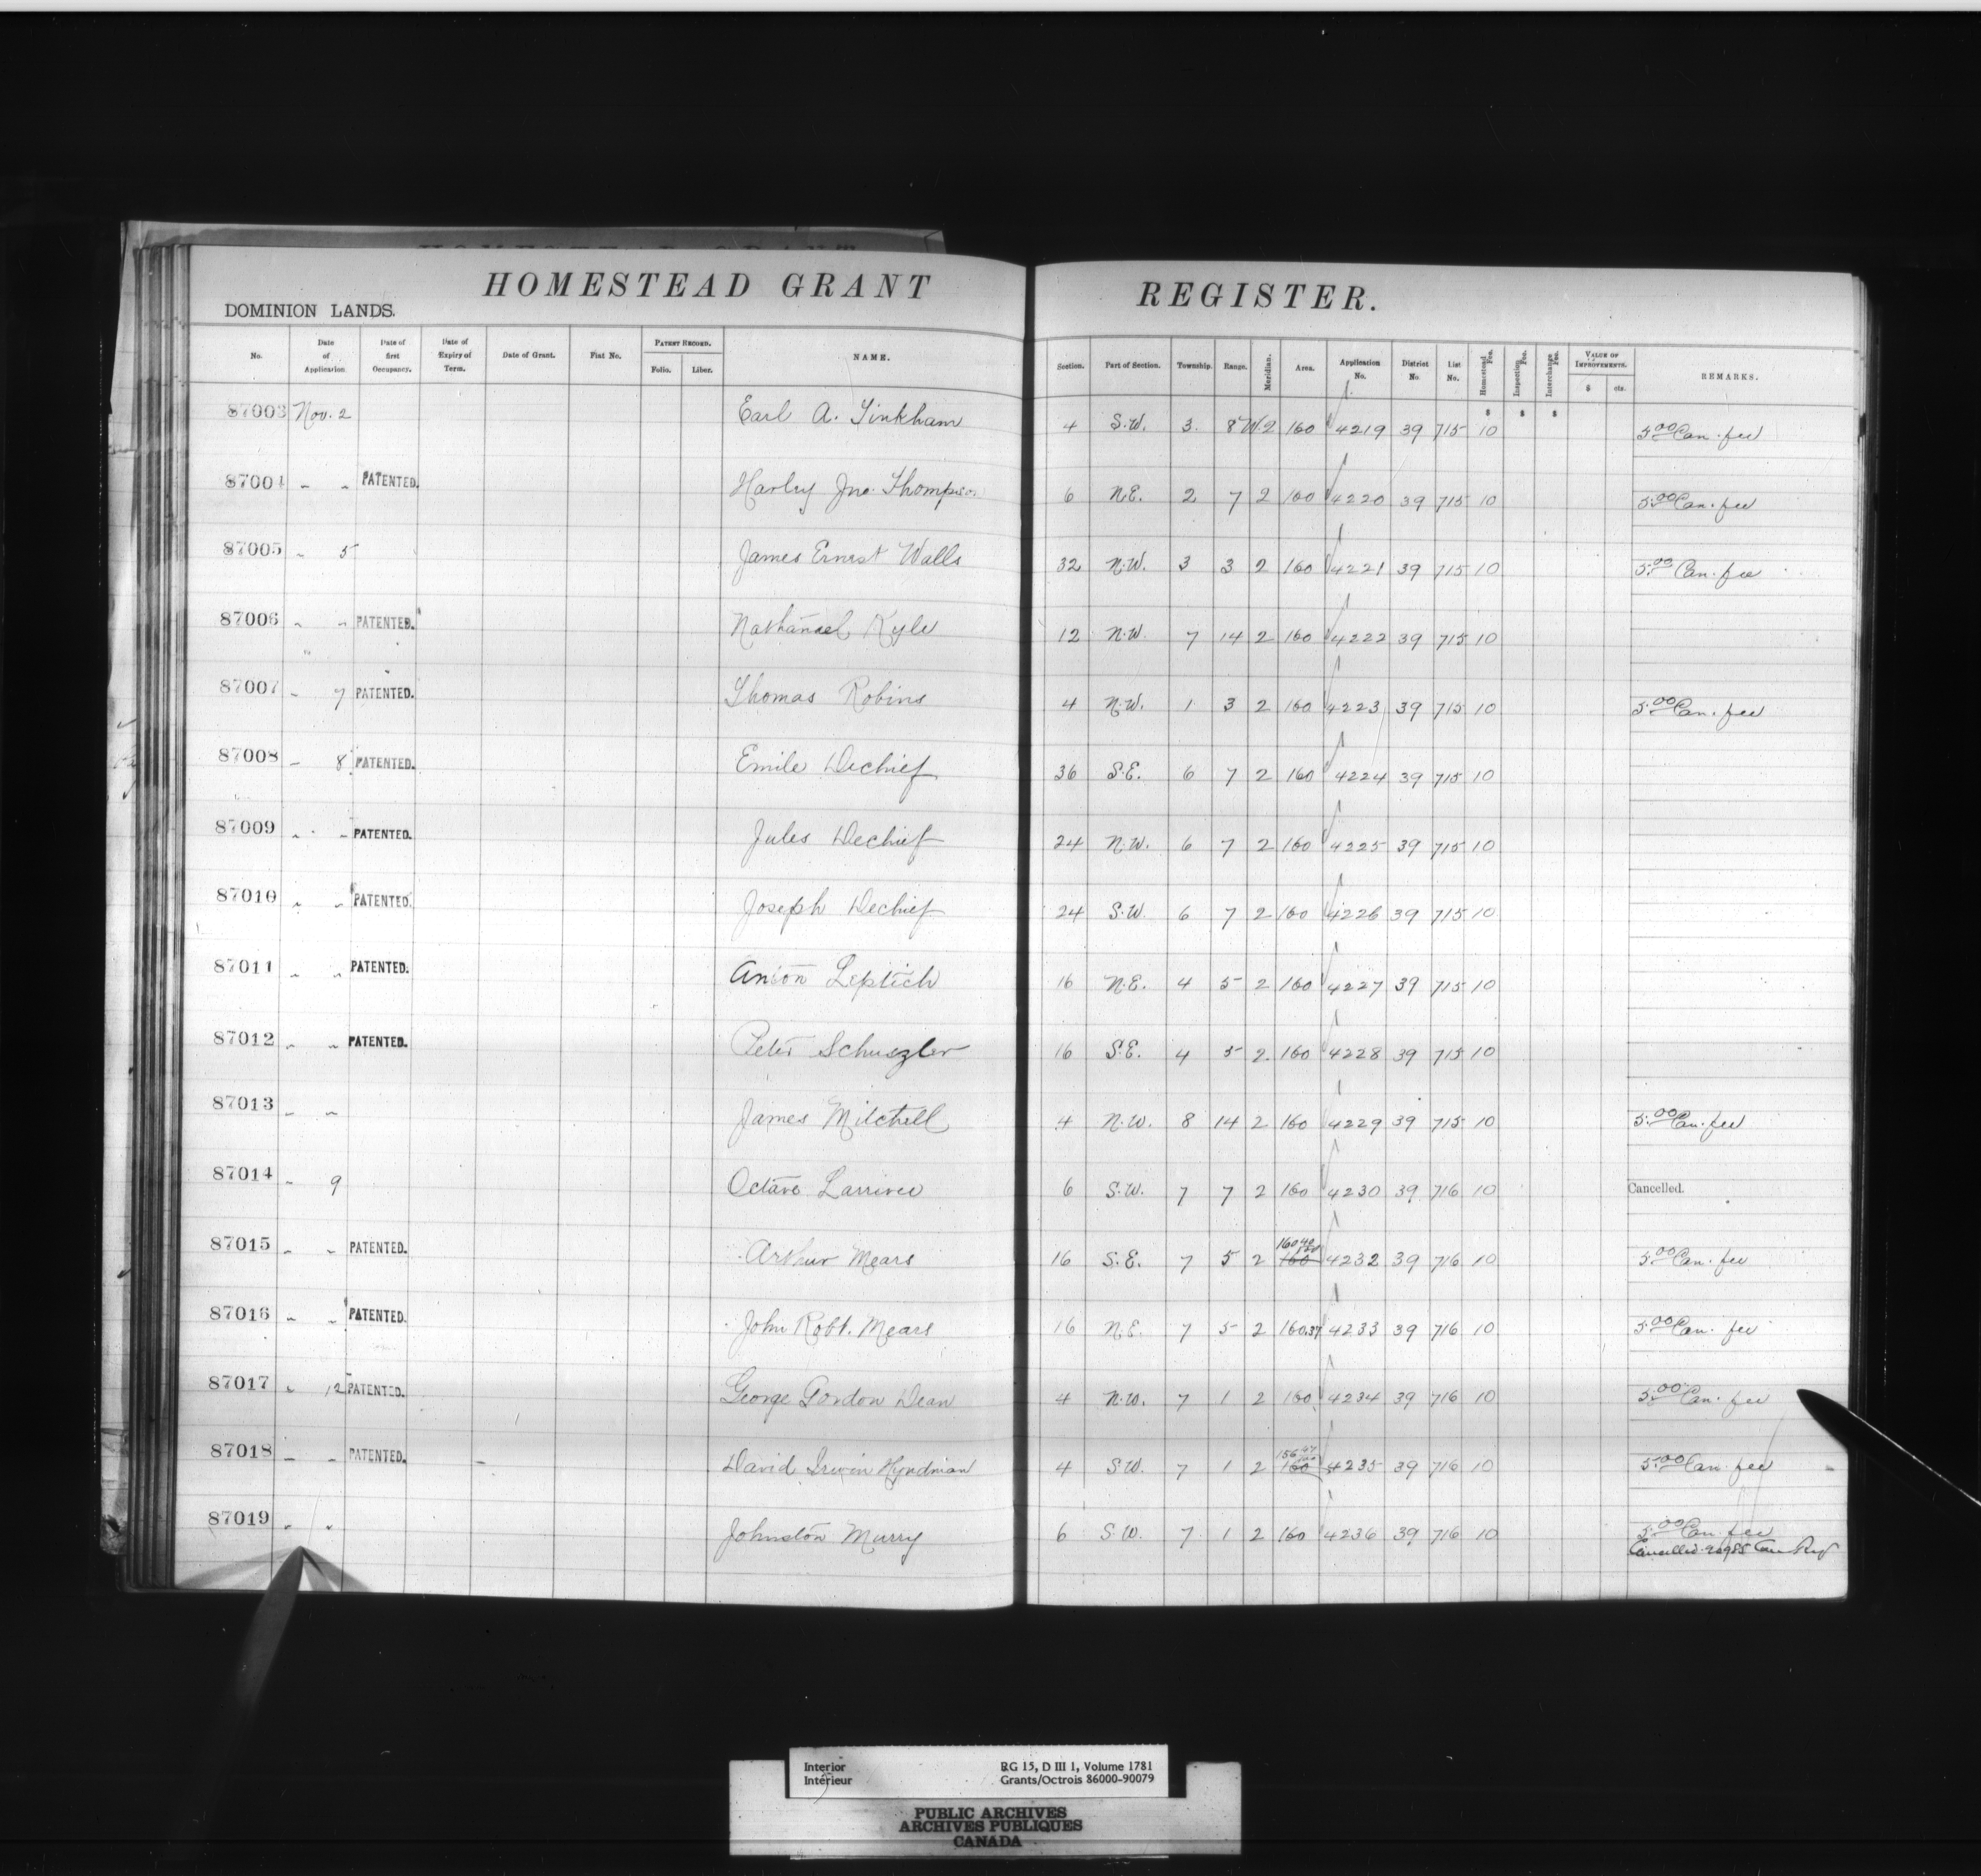 HOMESTEAD GRANT REGISTER.
DOMINION LANDS.
No. Date of Application Date of first Occupancy. Date of Expiry of Term. Date of Grant. Fiat No. PATENT RECORD. Folio. Liber. NAME. Section. Part of Section. Township. Range. Meridian. Area. Application No. District No. List No. Homestead Fee. Inspection Fee. Interchange Fee. VALUE OF IMPROVEMENTS. $ cts. REMARKS.
$ $ $
87003 Nov. 2 Earl A. Tinkham 4 S.W. 3 8 W.2 160 4219 39 715 10 5.00 Can. fee
87004 " " PATENTED. Harley Jno. Thompson 6 N.E. 2 7 2 160 4220 39 715 10 5.00 Can. fee
87005 " 5 James Ernest Walls 32 N.W. 3 3 2 160 4221 39 715 10 5.00 Can. fee
87006 " " PATENTED. Nathanael Kyle 12 N.W. 7 14 2 160 4222 39 715 10
87007 " 7 PATENTED. Thomas Robins 4 N.W. 1 3 2 160 4223 39 715 10 5.00 Can. fee
87008 " 8 PATENTED. Emile Dechief 36 S.E. 6 7 2 160 4224 39 715 10
87009 " " PATENTED. Jules Dechief 24 N.W. 6 7 2 160 4225 39 715 10
87010 " " PATENTED. Joseph Dechief 24 S.W. 6 7 2 160 4226 39 715 10
87011 " " PATENTED. Anton Leptich 16 N.E. 4 5 2 160 4227 39 715 10
87012 " " PATENTED. Peter Schuszler 16 S.E. 4 5 2 160 4228 39 715 10
87013 " " James Mitchell 4 N.W. 8 14 2 160 4229 39 715 10 5.00 Can. fee
87014 " 9 Octave Larrivee 6 S.W. 7 7 2 160 4230 39 716 10 Cancelled.
87015 " " PATENTED. Arthur Mears 16 S.E. 7 5 2 160 4232 39 716 10 5.00 Can. fee
87016 " " PATENTED. John Robt. Mears 16 N.E. 7 5 2 160.37 4233 39 716 10 5.00 Can. fee
87017 " 12 PATENTED. George Gordon Dean 4 N.W. 7 1 2 160 4234 39 716 10 5.00 Can. fee
87018 " " PATENTED. David Irwin Hyndman 4 S.W. 7 1 2 156.47 160 4235 39 716 10 5.00 Can. fee
87019 " " Johnston Murry 6 S.W. 7 1 2 160 4236 39 716 10 5.00 Can. fee
Cancelled
Interior RG 15, D III 1, Volume 1781
Intérieur Grants/Octrois 86000-90079
PUBLIC ARCHIVES
ARCHIVES PUBLIQUES
CANADA